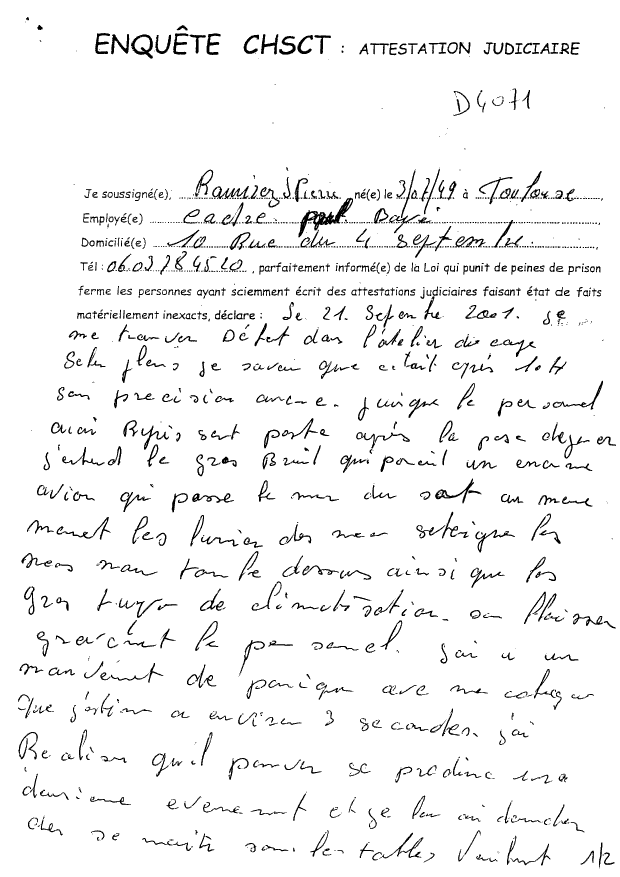 ENQUÊTE CHSCT : ATTESTATION JUDICIAIRE
D4071
Je soussigné(e), Ramirez J Pierre né(e) le 3/07/49 à Toulouse
Employé(e) cadre Bayé
Domicilié(e) 10 Rue du 4 Septembre.
Tél : 06 03 78 45 20, parfaitement informé(e) de la Loi qui punit de peines de prison
ferme les personnes ayant sciemment écrit des attestations judiciaires faisant état de faits
matériellement inexacts, déclare : Le 21 Septembre 2001. Je
me trouver Début dans l'atelier
je savai que c'etait après 10H
san precision aucune. puisque le personnel
avai Repris sont poste après la pose dejener
j'entend le gros Bruit qui parait un enorme
avion qui passe le mur du sont au meme
moment les lumier des neon seteigne les
neons nous tombe dessus ainsi que les
gros tuyo de climatisation. san blaisser
le personel. j'ai u un
mouvement de panique avec mes colegues
Que j'estime a environ 3 secondes. j'ai
Realiser qu'il pouver se produire une
deusieme evenement et je leur ai demander
des se maitre sous les tables 1/2